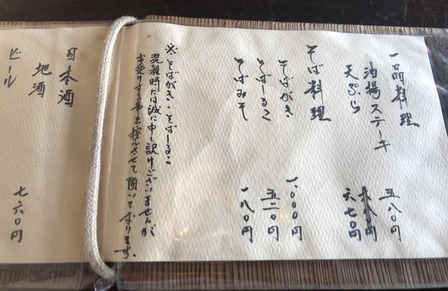 一品料理
油揚ステーキ 五八〇円
天ぷら 六七〇円
そば料理
そばがき 一、〇〇〇円
そばーるこ 五二〇円
そばみそ 一八〇円
※そばがき、そばーるこ
混雑時には誠に申し訳けございませんが
お受けする事を控えさせて頂いております。
日本酒
地酒
ビール 七六〇円